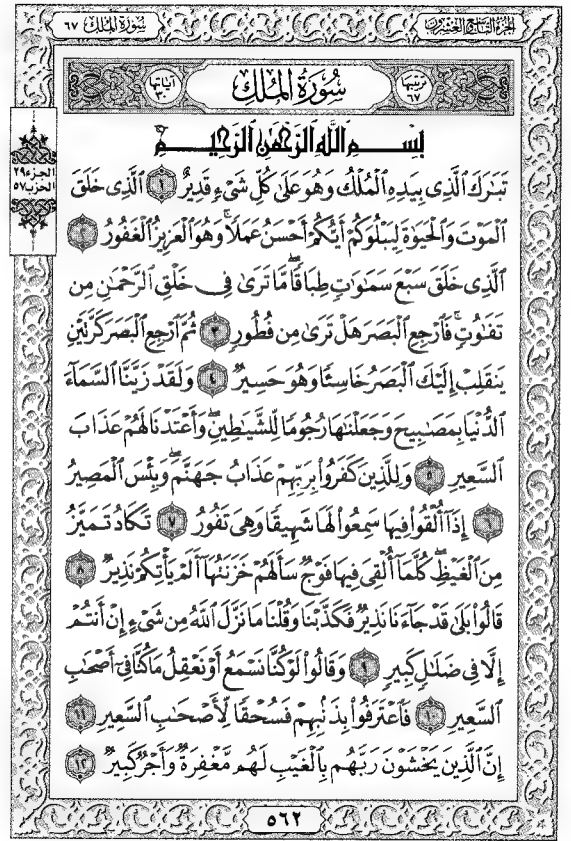 سُورَةُ المُلْكِ ٦٧
الجُزءُ التَّاسِعُ وَالعِشْرُونَ
آيَاتُهَا ٣٠
سُورَةُ المُلْكِ
تَرتِيبُهَا ٦٧
بِسْمِ ٱللَّهِ ٱلرَّحْمَٰنِ ٱلرَّحِيمِ
الجزء ٢٩
الحزب ٥٧
تَبَٰرَكَ ٱلَّذِى بِيَدِهِ ٱلْمُلْكُ وَهُوَ عَلَىٰ كُلِّ شَىْءٍ قَدِيرٌ ١ ٱلَّذِى خَلَقَ
ٱلْمَوْتَ وَٱلْحَيَوٰةَ لِيَبْلُوَكُمْ أَيُّكُمْ أَحْسَنُ عَمَلًا ۚ وَهُوَ ٱلْعَزِيزُ ٱلْغَفُورُ ٢
ٱلَّذِى خَلَقَ سَبْعَ سَمَٰوَٰتٍ طِبَاقًا ۖ مَّا تَرَىٰ فِى خَلْقِ ٱلرَّحْمَٰنِ مِن
تَفَٰوُتٍ ۖ فَٱرْجِعِ ٱلْبَصَرَ هَلْ تَرَىٰ مِن فُطُورٍ ٣ ثُمَّ ٱرْجِعِ ٱلْبَصَرَ كَرَّتَيْنِ
يَنقَلِبْ إِلَيْكَ ٱلْبَصَرُ خَاسِئًا وَهُوَ حَسِيرٌ ٤ وَلَقَدْ زَيَّنَّا ٱلسَّمَآءَ
ٱلدُّنْيَا بِمَصَٰبِيحَ وَجَعَلْنَٰهَا رُجُومًا لِّلشَّيَٰطِينِ ۖ وَأَعْتَدْنَا لَهُمْ عَذَابَ
ٱلسَّعِيرِ ٥ وَلِلَّذِينَ كَفَرُوا۟ بِرَبِّهِمْ عَذَابُ جَهَنَّمَ ۖ وَبِئْسَ ٱلْمَصِيرُ
٦ إِذَآ أُلْقُوا۟ فِيهَا سَمِعُوا۟ لَهَا شَهِيقًا وَهِىَ تَفُورُ ٧ تَكَادُ تَمَيَّزُ
مِنَ ٱلْغَيْظِ ۖ كُلَّمَآ أُلْقِىَ فِيهَا فَوْجٌ سَأَلَهُمْ خَزَنَتُهَآ أَلَمْ يَأْتِكُمْ نَذِيرٌ ٨
قَالُوا۟ بَلَىٰ قَدْ جَآءَنَا نَذِيرٌ فَكَذَّبْنَا وَقُلْنَا مَا نَزَّلَ ٱللَّهُ مِن شَىْءٍ إِنْ أَنتُمْ
إِلَّا فِى ضَلَٰلٍ كَبِيرٍ ٩ وَقَالُوا۟ لَوْ كُنَّا نَسْمَعُ أَوْ نَعْقِلُ مَا كُنَّا فِىٓ أَصْحَٰبِ
ٱلسَّعِيرِ ١٠ فَٱعْتَرَفُوا۟ بِذَنۢبِهِمْ فَسُحْقًا لِّأَصْحَٰبِ ٱلسَّعِيرِ ١١
إِنَّ ٱلَّذِينَ يَخْشَوْنَ رَبَّهُم بِٱلْغَيْبِ لَهُم مَّغْفِرَةٌ وَأَجْرٌ كَبِيرٌ ١٢
٥٦٢